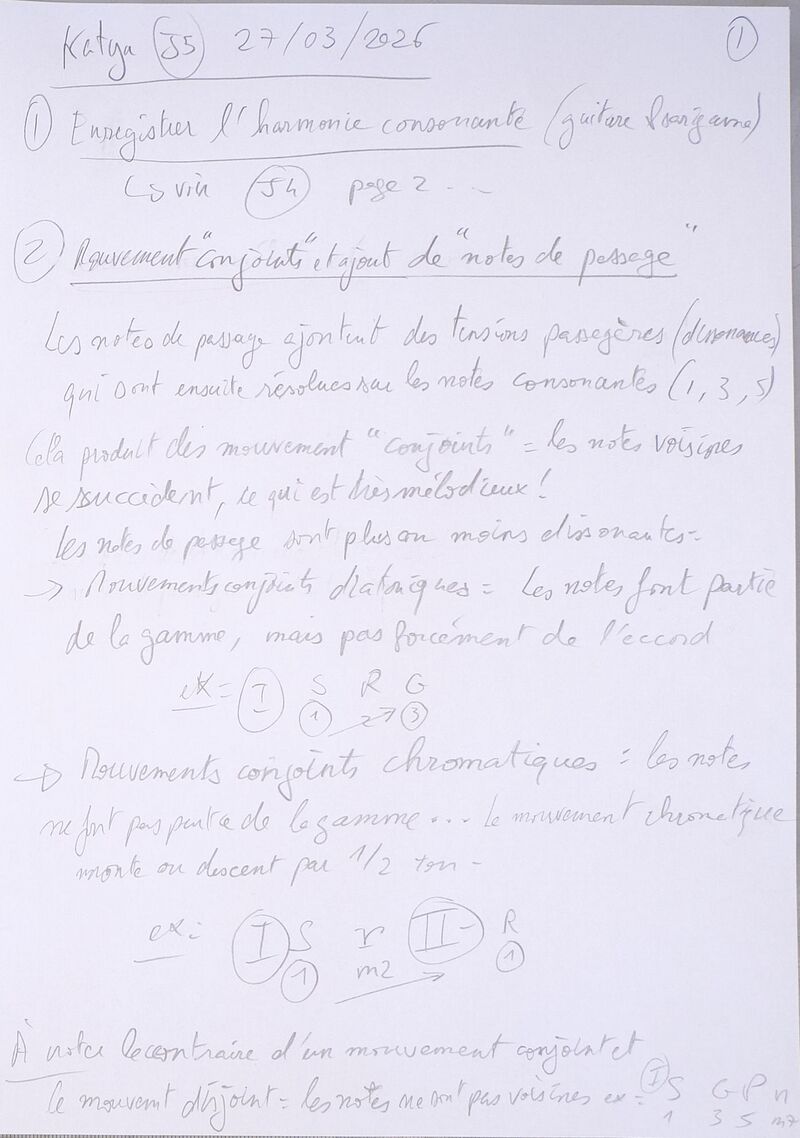 Katya J5 27/03/2026 1
1 Enregistrer l'harmonie consonante (guitare &
↳ J4 page 2 ...
2 Mouvement "conjoints" et ajout de "notes de passage"
Les notes de passage ajoutent des tensions passagères (dissonances)
qui sont ensuite résolues sur les notes consonantes (1, 3, 5)
Cela produit des mouvement "conjoints" = les notes voisines
se succèdent, ce qui est très mélodieux !
Les notes de passage sont plus ou moins dissonantes -
→ Mouvements conjoints diatoniques = Les notes font partie
de la gamme, mais pas forcément de l'accord
ex = I S R G
1 2 → 3
→ Mouvements conjoints chromatiques = les notes
ne font pas partie de la gamme ... Le mouvement chromatique
monte ou descent par 1/2 ton -
ex = I S r II- R
1 m2 → 1
À noter le contraire d'un mouvement conjoint et
le mouvement disjoint = les notes ne sont pas voisines ex = I S G P n
1 3 5 m7